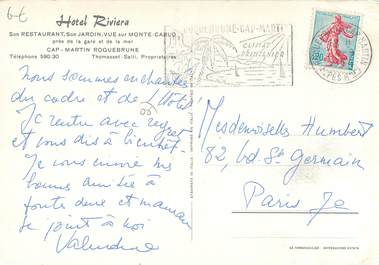 6€
Hotel Riviera
Son RESTAURANT, Son JARDIN, VUE sur MONTE-CARLO
près de la gare et de la mer
CAP-MARTIN ROQUEBRUNE
Téléphone 590.30 Thomassel-Salli, Propriétaires
ROQUEBRUNE-CAP-MARTIN
CLIMAT
PRINTANIER
0,20
Nous sommes enchantées
du cadre et de l'Hotel
Je rentre avec regret
et vous dis à bientôt.
Je vous envoie mes
bonnes amitiés à
toutes deux et maman
se joint à moi
Valentine
Mesdemoiselles Humbert
82, bd. St Germain
Paris 5e